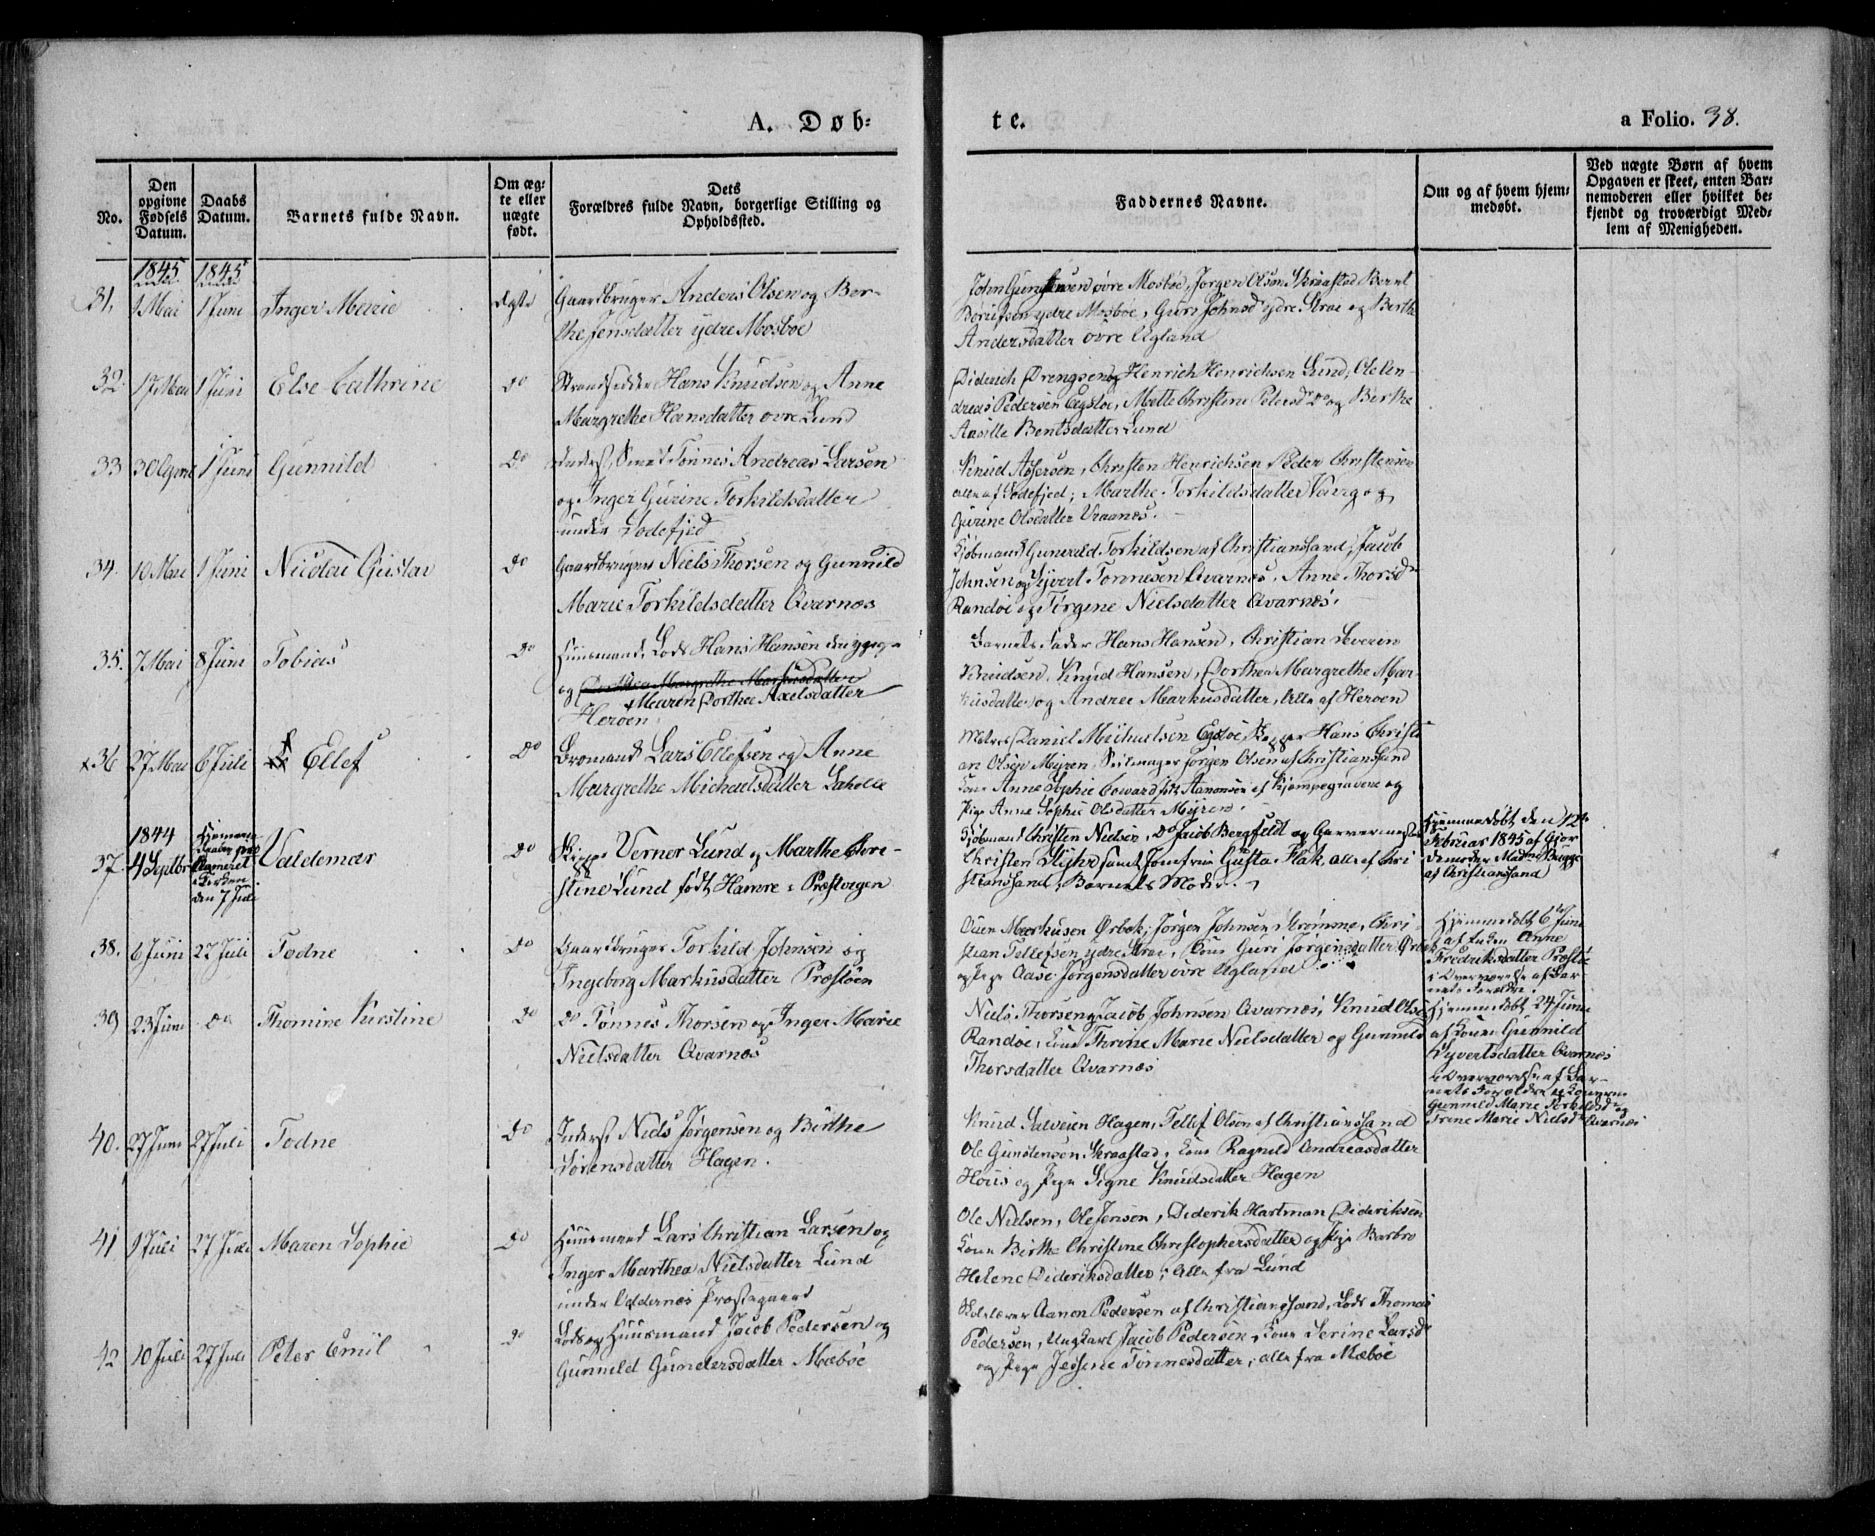 A. Døb-
te.
a Folio. 38.
No.
Den opgivne Fødsels Datum.
Daabs Datum.
Barnets fulde Navn.
Om ægte eller uægte født.
Dets Forældres fulde Navn, borgerlige Stilling og Opholdssted.
Faddernes Navne.
Om og af hvem hjemmedøbt.
Ved uægte Børn af hvem Opgaven er skeet, enten Barnemoderen eller hvilket bekjendt og troværdigt Medlem af Menigheden.
1845 1845
31. 1 Mai 1 Juni Inger Marie Ægte Gaardbruger Anders Olsen og Ber-
the Jensdatter ydre Mosbøe
John Gundersen øvre Mosbøe, Jørgen Olsen Skraastad Bernt
ydre Mosbøe, Guri Johnsd ydre Strae og Berthe
Andersdatter øvre Ugland
32. 17 Mai 1 Juni Else Cathrine Do Strandsidder Hans Knudsen og Anne
Margrethe Hansdatter øvre Lund
Diderich Drengsen og Henrich Henrichsen Lund, Ole An-
dreas Pedersen Egsløe, Mette Christine Petersd Do og Berthe
Bentsdatter Lund
33 30 1 Juni Gunnild Do Inderst, Tønnes Andreas Larsen
og Inger Gurine Torkildsdatter
under Dodefjed
Knud Assersen, Christen Henrichsen Peder Christensen
alle af Dodefjed; Marthe Torkildsdatter Varg og
Gurine Olsdatter Vraanes.
34. 10 Mai 1 Juni Nicolai Gustav Do Gaardbruger Niels Thorsen og Gunnild
Marie Torkildsdatter Qvarnes
Kjøbmand Gunvald Torkildsen af Christiansand, Jacob
Johnsen og Syvert Tønnesen Qvarnes, Anne Thorsd
Randøe og Tørgine Nielsdatter Qvarnes.
35. 7 Mai 8 Juni Tobias Do Huusmand, Lods Hans Hansen den yngre
og Dorthea Margrethe Markusdatter
Maren Dorthea Axelsdatter
Herøen.
Barnets Fader Hans Hansen, Christian Severin
Knudsen, Knud Hansen, Dorthea Margrethe Mar-
kusdatter og Andrea Markusdatter, Alle af Herøen
x36 27 Mai 6 Juli Ellef Do Bromand Lars Ellefsen og Anne
Margrethe Michaelsdatter Laholle
Daniel Michaelsen Egsløe, Hans Christi
an Olsen Myren, Seilmager Jørgen Olsen af Christiansand
Kone Anne Sophie Aanonsen af Kjempegravene og
Pige Anne Sophie Olsdatter Myren.
1844
37. 4 Septbr Hjemme-
Daaben
i Kirken
den 7 Juli
Valdemar Do Skipper Verner Lund og Marthe Chri-
stine Lund født Hamre i Præstvegen
Kjøbmand Christen Nielsen, Do Jacob Bergfeldt og Garvermester
Christen Myhre samt Jomfrue Gusta Flak, alle af Chri
stiansand, Barnets Moder.
Hjemmedøbt den 12te
Februar 1845 af Gjor
demoder Madme Brygge
af Christiansand
38. 6 Juni 27 Juli Todne Do Gaardbruger Torkild Johnsen og
Ingeborg Markusdatter Præstøen
Ouen Markusen Ørbek, Jørgen Johnsen Strømme, Chri
stian Tellefsen ydre Strae, Kone Guri Jørgensdatter Ørbek
og Pige Aase Jørgensdatter øvre Ugland
Hjemmedøbt 6te Juni
af Enken Anne
Fredriksdatter Præstøe
i Overværelse af Bar
nets Forældre.
39 23 Juni Do Thomine Kirstine Do Do Tønnes Thorsen og Inger Marie
Nielsdatter Qvarnes
Niels Thorsen og Jacob Johnsen Qvarnes, Knud Olsen
Randøe, Kone Thrine Marie Nielsdatter og Gunnild
Thorsdatter Qvarnes
Hjemmedøbt 24 Juni
af Konen Gunnild
Syvertsdatter Qvarnes
i Overværelse af Bar-
nets Forældre og Konerne
Gunnild Marie Torkildsd og
Trine Marie Nielsd Qvarnes
40. 27 Juni 27 Juli Todne Do Inderst Niels Jørgensen og Birthe
Sørensdatter Hagen.
Knud Salvesen Hagen, Tellef Olsen af Christiansand
Ole Gundersen Skraastad, Kone Ragnild Andreasdatter
Höiis og Pige Signe Knudsdatter Hagen
41 1 Juli 27 Juli Maren Sophie Do Huusmand Lars Christian Larsen og
Inger Marthea Nielsdatter Lund
under Oddernes Præstegaard
Ole Nielsen, Ole Jensen, Diderik Hartman Dideriksen
Kone Birthe Christine Christophersdatter og Pige Barbro
Helene Dideriksdatter; Alle fra Lund
42 10 Juli 27 Juli Peter Emil Do Lods og Huusmand Jacob Pedersen og
Gunnild Gundersdatter Mæbøe
Skolelærer Aanon Pedersen af Christiansand, Lods Thomas
Pedersen, Ungkarl Jacob Pedersen, Kone Serine Larsdr
og Pige Jensine Tønnesdatter, alle fra Mæbøe